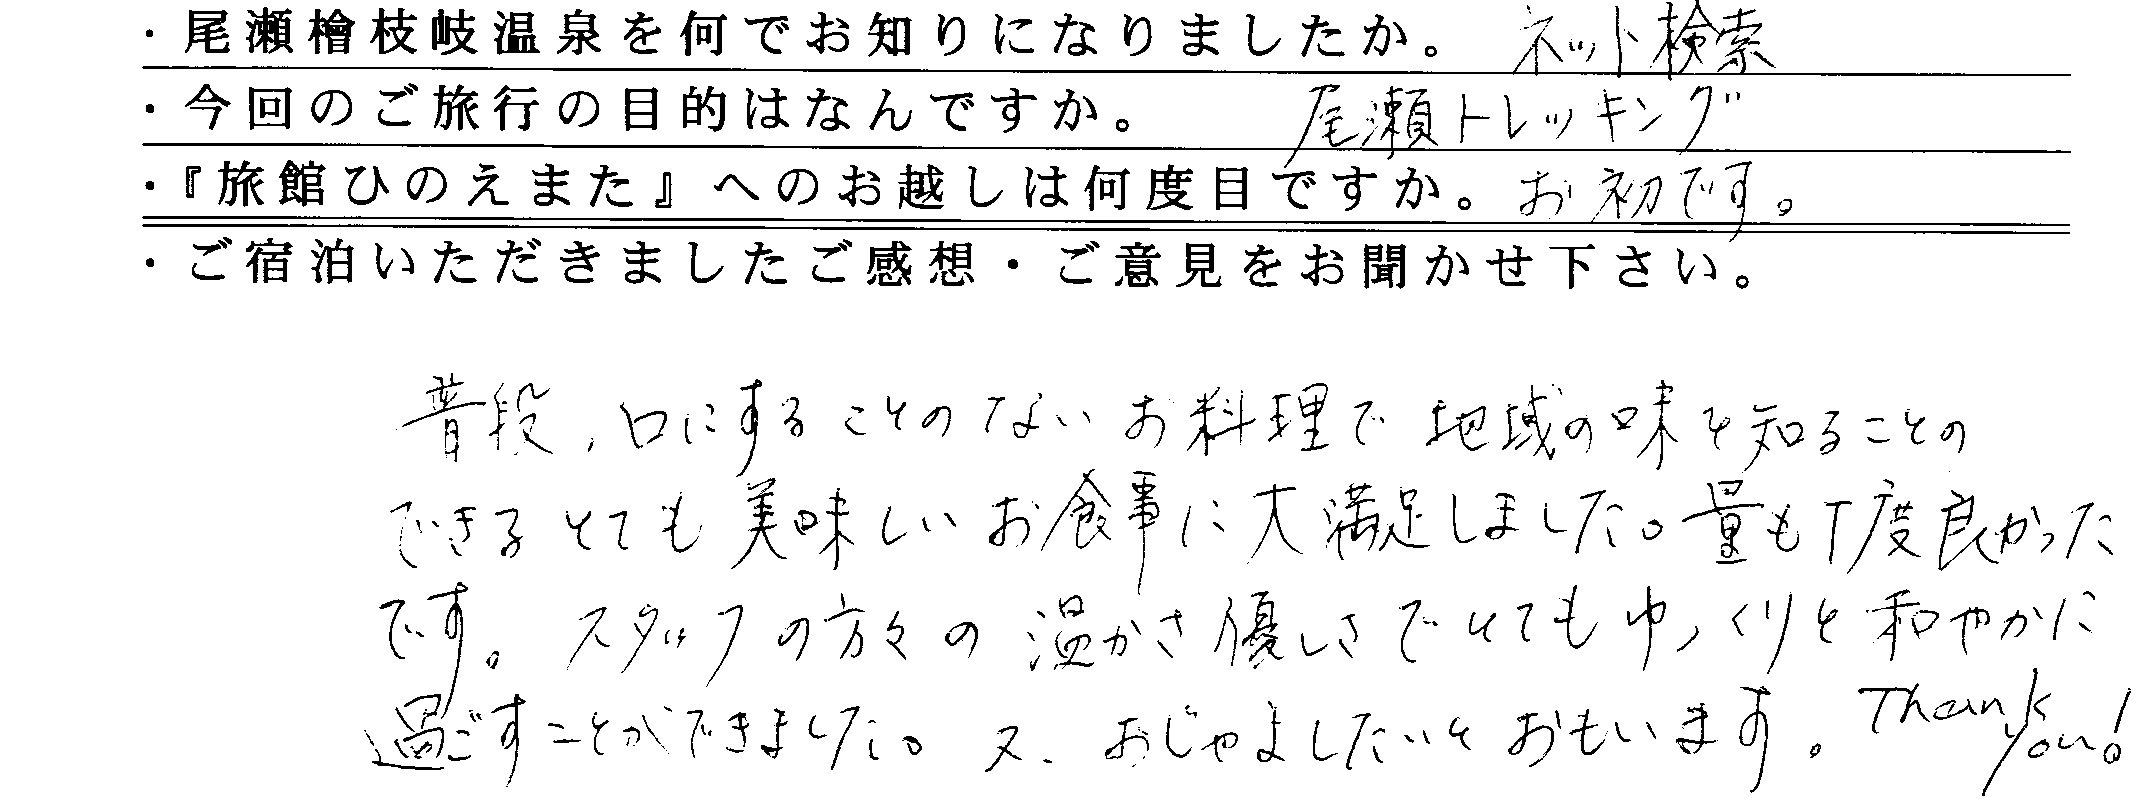 ・尾瀬檜枝岐温泉を何でお知りになりましたか。 ネット検索
・今回のご旅行の目的はなんですか。 尾瀬トレッキング
・『旅館ひのえまた』へのお越しは何度目ですか。 お初です。
・ご宿泊いただきましたご感想・ご意見をお聞かせ下さい。
普段、口にすることのないお料理で地域の味を知ることの
できるとても美味しいお食事に大満足しました。量も丁度良かった
です。スタッフの方々の温かさ優しさでとてもゆっくりと和やかに
過ごすことができました。又、おじゃましたいとおもいます。Thank you!